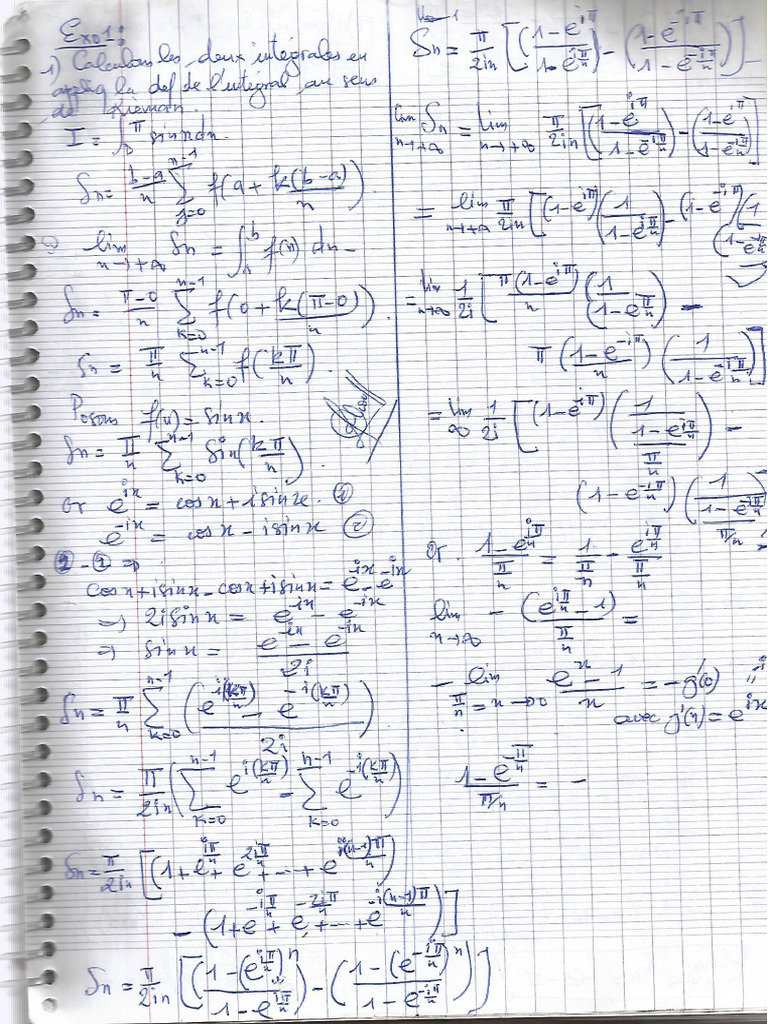 Exo1:
1) Calculons les deux intégrales en
appliq la def de l'intégral au sens
de Rieman.
I = ∫₀^π sinx dx.
Sn = (b-a)/n ∑_{j=0}^{n-1} f(a + k(b-a)/n)
lim_{n→+∞} Sn = ∫_a^b f(x) dx
Sn = (π-0)/n ∑_{k=0}^{n-1} f(0 + k(π-0)/n).
Sn = π/n ∑_{k=0}^{n-1} f(kπ/n).
Posons f(x) = sinx.
Sn = π/n ∑_{k=0}^{n-1} sin(kπ/n).
or e^{ix} = cosx + isinx. ①
e^{-ix} = cosx - isinx ②
⇒
cosx + isinx - cosx + isinx = e^{ix} - e^{-ix}
⇒ 2isinx = e^{ix} - e^{-ix}
⇒ sinx = (e^{ix} - e^{-ix})/2i
Sn = π/n ∑_{k=0}^{n-1} ((e^{i(kπ/n)} - e^{-i(kπ/n)})/2i)
Sn = π/2in (∑_{k=0}^{n-1} e^{i(kπ/n)} - ∑_{k=0}^{n-1} e^{-i(kπ/n)})
Sn = π/2in [(1 + e^{iπ/n} + e^{2iπ/n} + ... + e^{i(n-1)π/n})
- (1 + e^{-iπ/n} + e^{-2iπ/n} + ... + e^{-i(n-1)π/n})]
Sn = π/2in [((1-(e^{iπ/n})^n)/(1-e^{iπ/n})) - ((1-(e^{-iπ/n})^n)/(1-e^{-iπ/n}))]
Sn = π/2in [((1-e^{iπ})/(1-e^{iπ/n})) - ((1-e^{-iπ})/(1-e^{-iπ/n}))]
lim_{n→+∞} Sn = lim_{n→+∞} π/2in [((1-e^{iπ})/(1-e^{iπ/n})) - ((1-e^{-iπ})/(1-e^{-iπ/n}))]
= lim_{n→+∞} π/2in [(1-e^{iπ})(1/(1-e^{iπ/n})) - (1-e^{-iπ})(1/(1-e^{-iπ/n}))]
= lim_{n→∞} 1/2i [π(1-e^{iπ})/n (1/(1-e^{iπ/n})) -
π((1-e^{-iπ})/n)(1/(1-e^{-iπ/n}))]
= lim_∞ 1/2i [(1-e^{iπ})(1/((1-e^{iπ/n})/(π/n))) -
(1-e^{-iπ})(1/((1-e^{-iπ/n})/(π/n)))
or. (1-e^{iπ/n})/(π/n) = 1/(π/n) - e^{iπ/n}/(π/n)
lim_{n→∞} - (e^{iπ/n} - 1)/(π/n) =
- lim_{π/n = x→0} (e^x - 1)/x = -g'(0)
avec g'(x) = e^{ix}
(1-e^{-π/n})/(π/n) = -